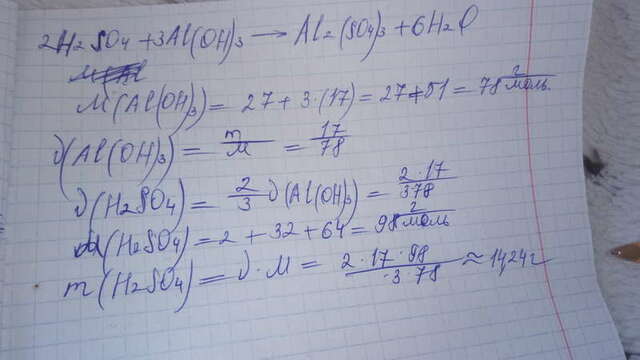 2H₂SO₄ + 3Al(OH)₃ → Al₂(SO₄)₃ + 6H₂O
M(Al(OH)₃) = 27 + 3·(17) = 27 + 51 = 78 г/моль.
ν(Al(OH)₃) = m/M = 17/78
ν(H₂SO₄) = 2/3 ν(Al(OH)₃) = 2·17/3·78
M(H₂SO₄) = 2 + 32 + 64 = 98 г/моль
m(H₂SO₄) = ν·M = 2·17·98/·3·78 ≈ 14,24 г